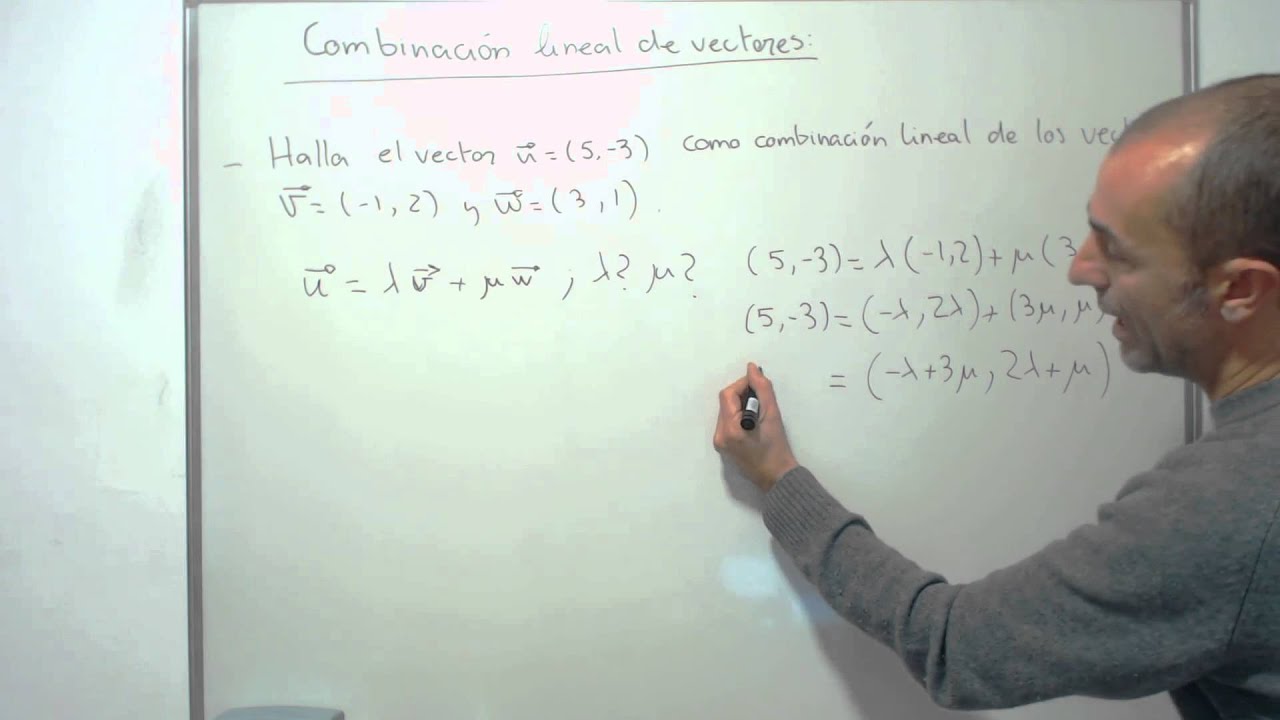 Combinación lineal de vectores:
- Halla el vector u⃗ = (5,-3) como combinación lineal de los
v⃗ = (-1, 2) y w⃗ = (3, 1).
u⃗ = λv⃗ + μw⃗ ; λ? μ?
(5,-3) = λ(-1,2) + μ(3
(5,-3) = (-λ, 2λ) + (3μ, μ
= (-λ+3μ, 2λ+μ)